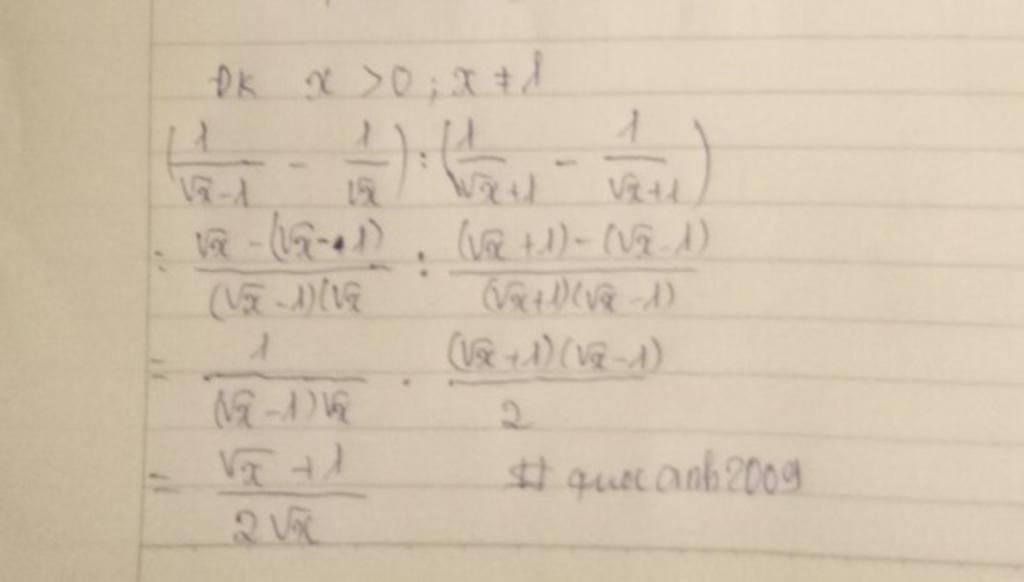 ĐK x > 0 ; x ≠ 1
(1/(√x-1) - 1/√x) : (1/(√x+1) - 1/(√x+1))
= (√x - (√x-1))/((√x-1)(√x) : ((√x+1)-(√x-1))/((√x+1)(√x-1))
= 1/((√x-1)√x) . ((√x+1)(√x-1))/2
= (√x+1)/(2√x) # quocanh2009